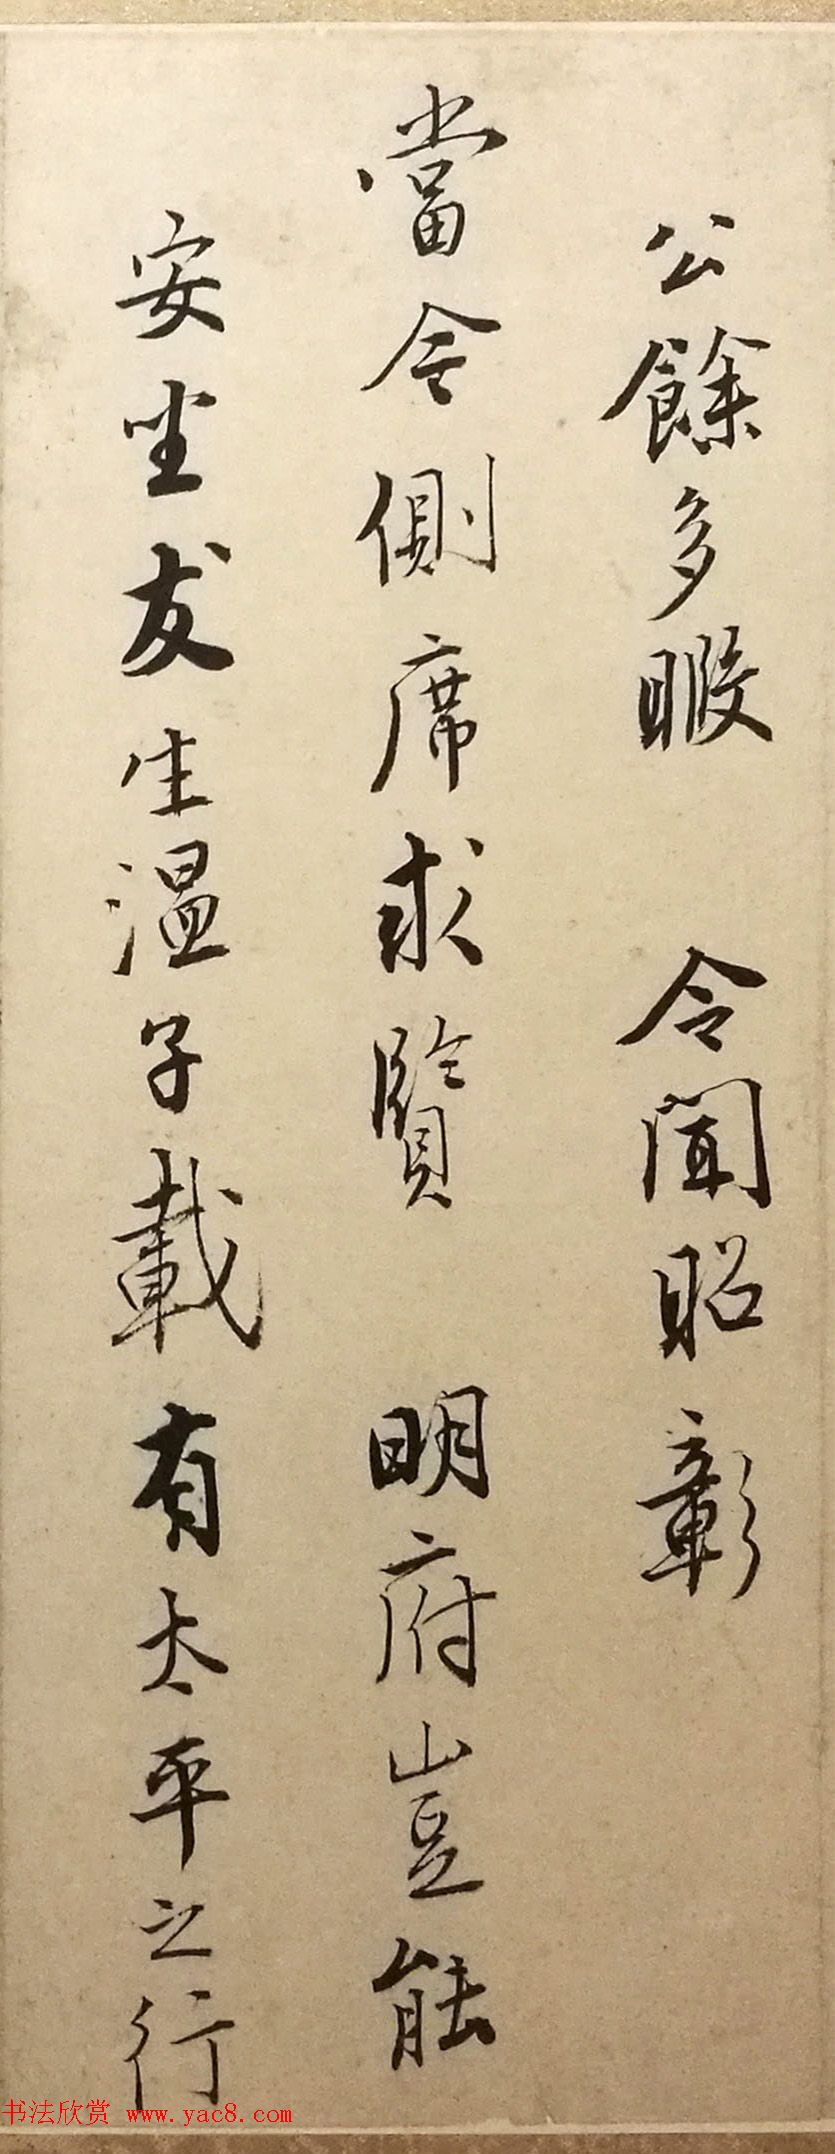 公餘多暇 令聞昭彰
當今側席求賢 明府豈能
安坐友生温子載有太平之行
书法欣赏 www.yac8.com